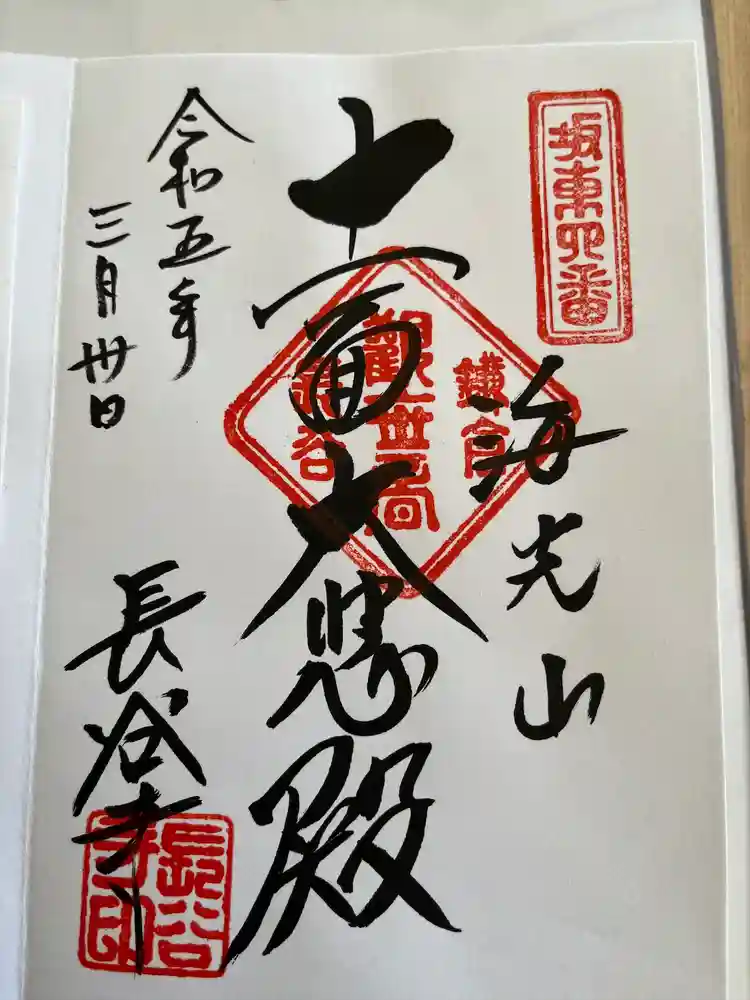 坂東四番
海光山
鎌倉
觀世音
長谷
十一面大悲殿
令和五年
三月卅日
長谷寺
長谷寺印